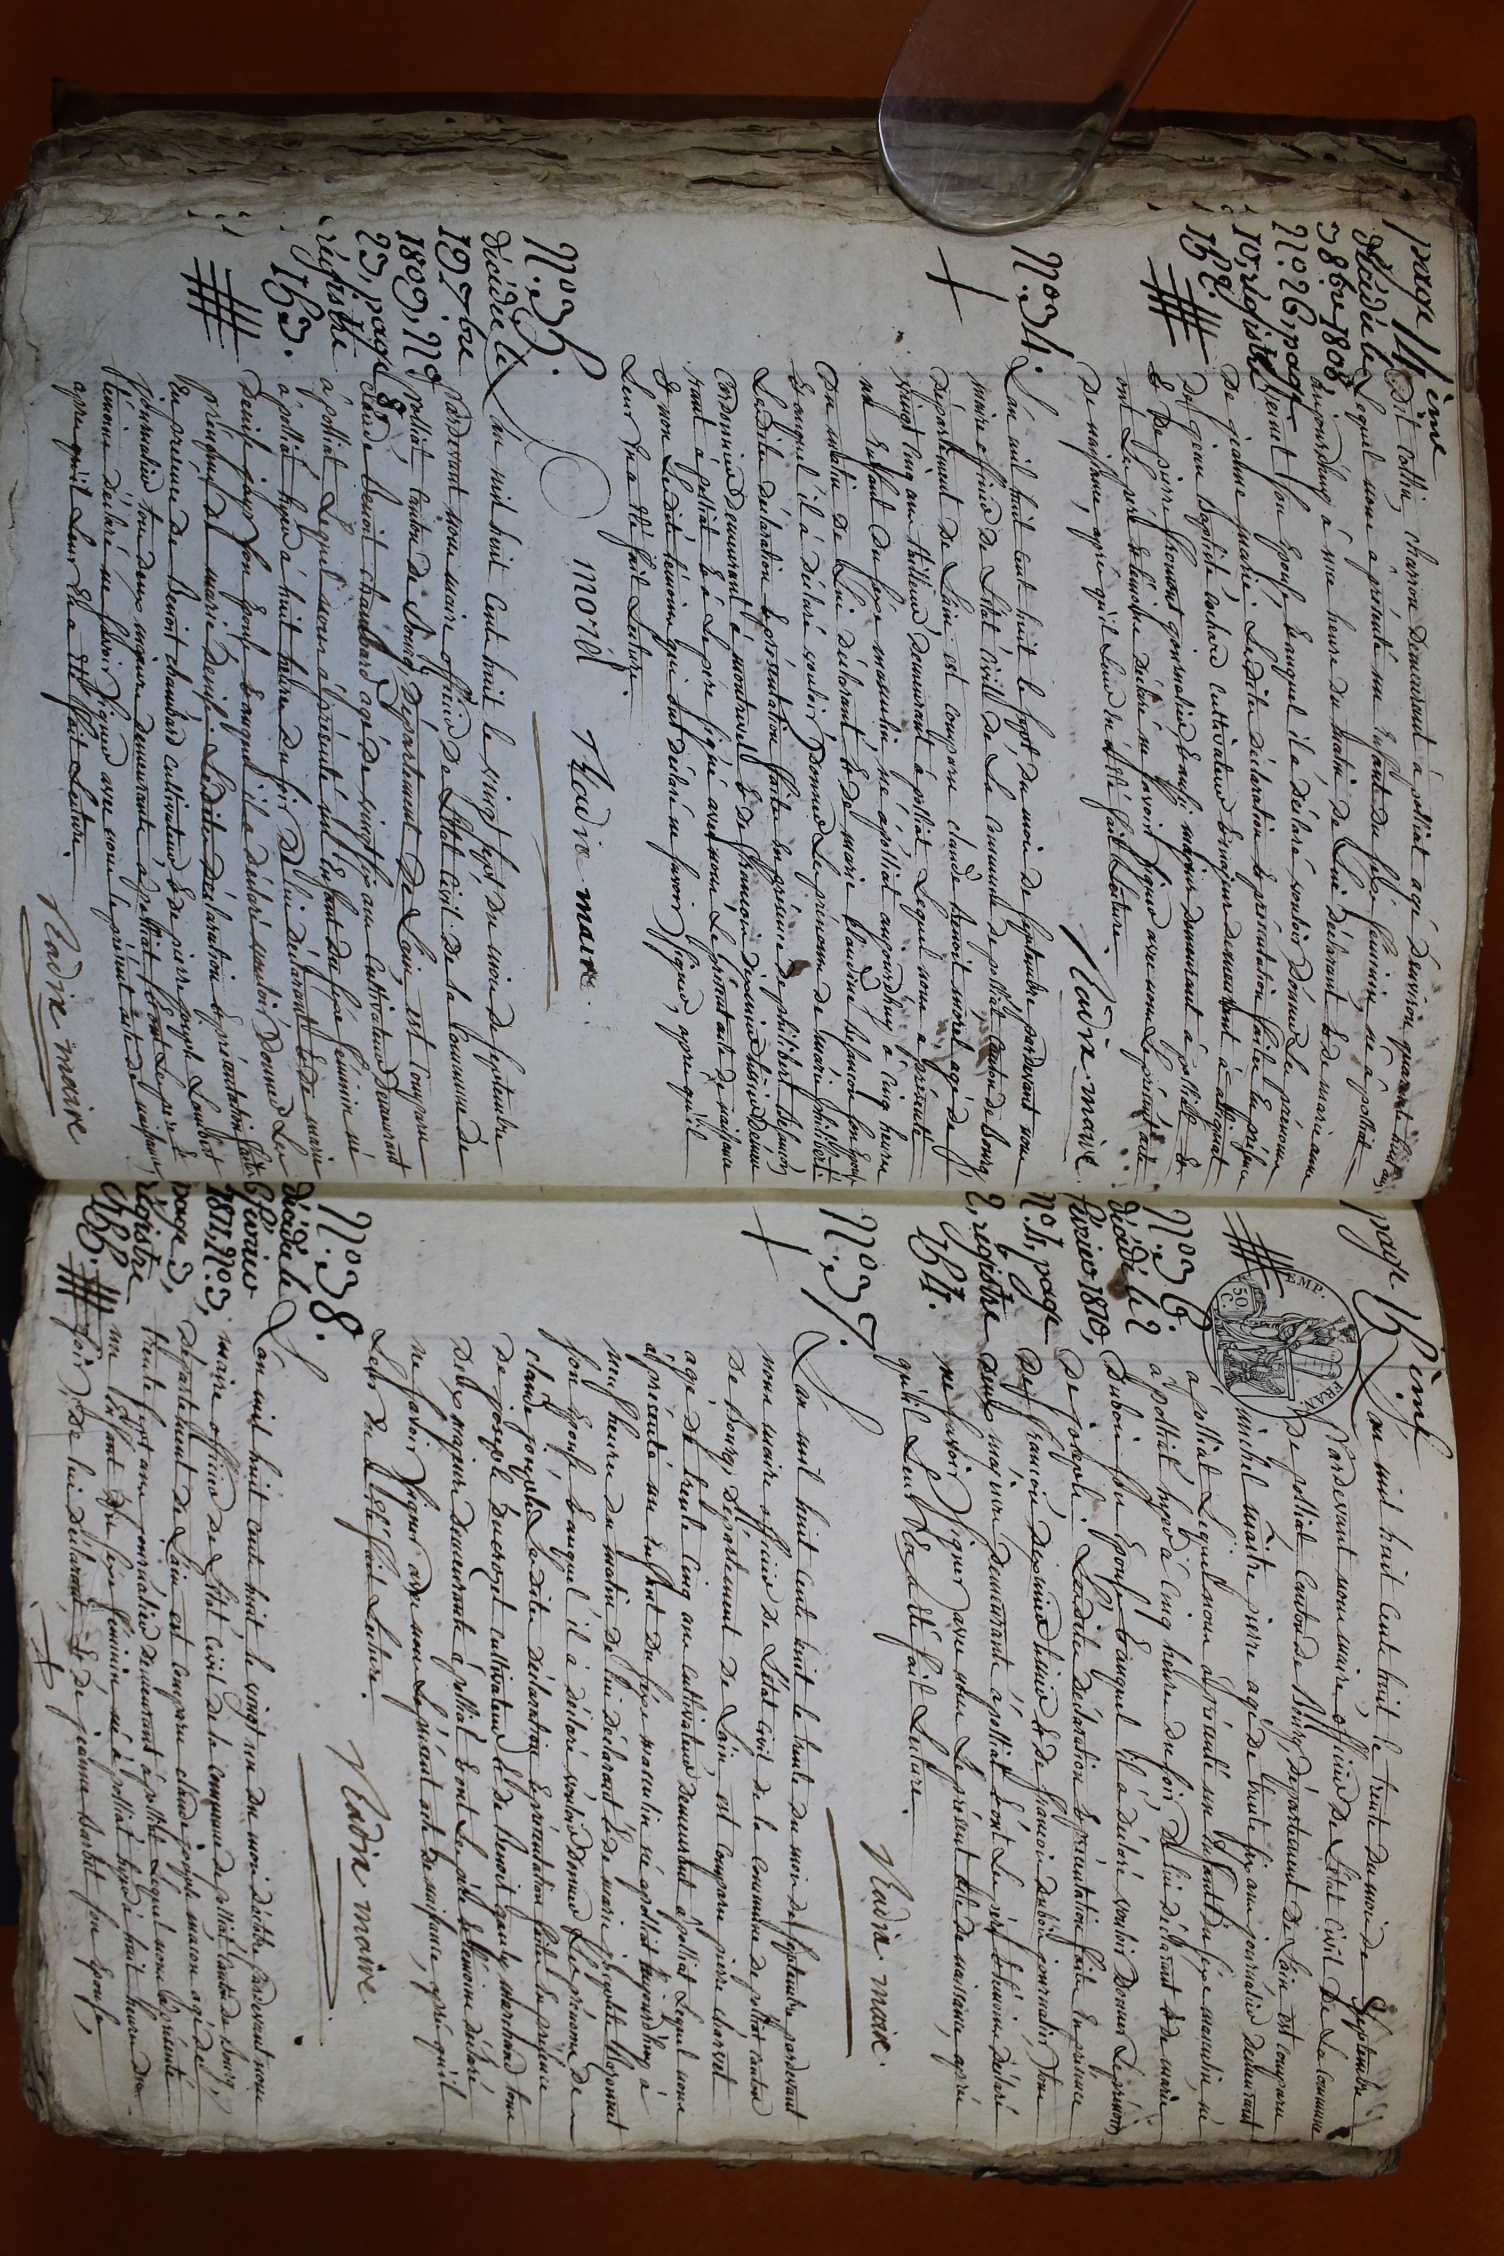 page 14 ème
décédée le
3 8bre 1808
N.º 26, page
10, registre
152.
dit Collin, charron demeurant à polliat agé d'environ quarante huit ans
Lequel nous a présenté une Enfant du sexe féminin, né à polliat
aujourd'huy à une heure du matin de Lui déclarant & de marie anne
son Epouse & auquel il a déclaré vouloir donner Le prénom
de jeanne marie. Lesdites déclaration & présentation faites En présence
de jean Baptiste cultivateur & majeur demeurant à attignat
& de pierre fromont journalier & aussi majeur demeurant à polliat &
ont Le père & témoins déclaré ne savoir Signer avec nous Le présent acte
de naissance, après qu'il Leur En a été fait Lecture.
Nadin maire
N.º 34.
L'an mil huit cent huit le sept du mois de septembre pardevant nous
maire officier de L'état civil de La commune de polliat canton de bourg,
département de L'ain, est comparu claude benoit morel agé de
vingt cinq ans tailleur demeurant à polliat Lequel nous a présenté
un Enfant du sexe masculin né à polliat aujourd'huy à cinq heures
du matin de Lui déclarant & de marie claudine besançon son Epouse
& auquel il a déclaré vouloir donner Le prénom de marie philibert.
Lesdites déclaration & présentation faites En présence de philibert besançon,
cordonnier demeurant à montrevel & de françois
à polliat & a Le père signé avec nous Le présent acte de naissance
& non Lesdits témoins qui ont déclaré ne savoir Signer, après qu'il
Leur En a été fait Lecture.
morel Nadin maire.
N.º 35.
décédée le
19 7bre
1809, Nº
23, page 8,
registre
153.
L'an mil huit cent huit le vingt sept du mois de septembre
pardevant nous maire officier de L'état civil de la commune de
polliat canton de bourg, département de L'ain, est comparu
claude benoit chambard agé de vingt six ans cultivateur demeurant
à polliat Lequel nous a présenté un Enfant du sexe féminin né
à polliat hyer à huit heures du soir de Lui déclarant & de marie
denise son Epouse & auquel il a déclaré vouloir donner Les
prénoms de marie denise. Lesdites déclaration & présentation faites
En présence de benoit chambard cultivateur & de pierre joseph
journalier tous deux majeurs demeurants à polliat & ont Le père &
témoins déclaré ne savoir Signer avec nous le présent acte de naissance,
après qu'il Leur En a été fait Lecture.
Nadin maire
page 15 ème
N.º 36.
décédé le 2
février 1810,
N.º 4, page
2, registre
154.
L'an mil huit cent huit le trente du mois de Septembre
Pardevant nous maire, officier de L'état civil de La commune
de polliat canton de Bourg, département de L'ain est comparu
michel maître pierre agé de trente six ans journalier demeurant
à polliat Lequel nous a présenté un Enfant du sexe masculin, né
à polliat hyer à cinq heures du soir, de Lui déclarant & de marie
Dubois son Epouse & auquel il a déclaré vouloir donner Le prénom
de joseph. Lesdites déclaration & présentation faites En présence
de françois & de françois dubois journalier, tous
deux majeurs demeurants à polliat & ont Le père & témoins déclaré
ne savoir Signer avec nous Le présent acte de naissance, après
qu'il Leur En a été fait Lecture.
Nadin maire.
N.º 37.
L'an mil huit cent huit le trente du mois de septembre pardevant
nous maire officier de L'état civil de la commune de polliat canton
de bourg, département de L'ain est comparu pierre
agé de trente cinq ans cultivateur demeurant à polliat Lequel nous
a présenté un Enfant du sexe masculin né à polliat aujourd'huy à
neuf heures du matin de Lui déclarant & de marie
son Epouse & auquel il a déclaré vouloir donner Le prénom de
claude joseph. Lesdites déclaration & présentation faites En présence
de joseph cultivateur & de benoit marchand tous
deux majeurs demeurants à polliat & ont Le père & témoins déclaré
ne savoir Signer avec nous Le présent acte de naissance, après qu'il
Leur En a été fait Lecture.
Nadin maire.
N.º 38.
décédée le
février
1811, N.º 3,
page 3,
registre
155.
L'an mil huit cent huit, le vingt un du mois d'octobre pardevant nous
maire officier de L'état civil de la commune de polliat canton de bourg,
département de L'ain est comparu claude joseph agé de
trente sept ans journalier demeurant à polliat Lequel nous a présenté
un Enfant du sexe féminin, né à polliat hyer à huit heures du
soir, de Lui déclarant, & de jeanne son Epouse,
TIMP.
50 C.
FRAN